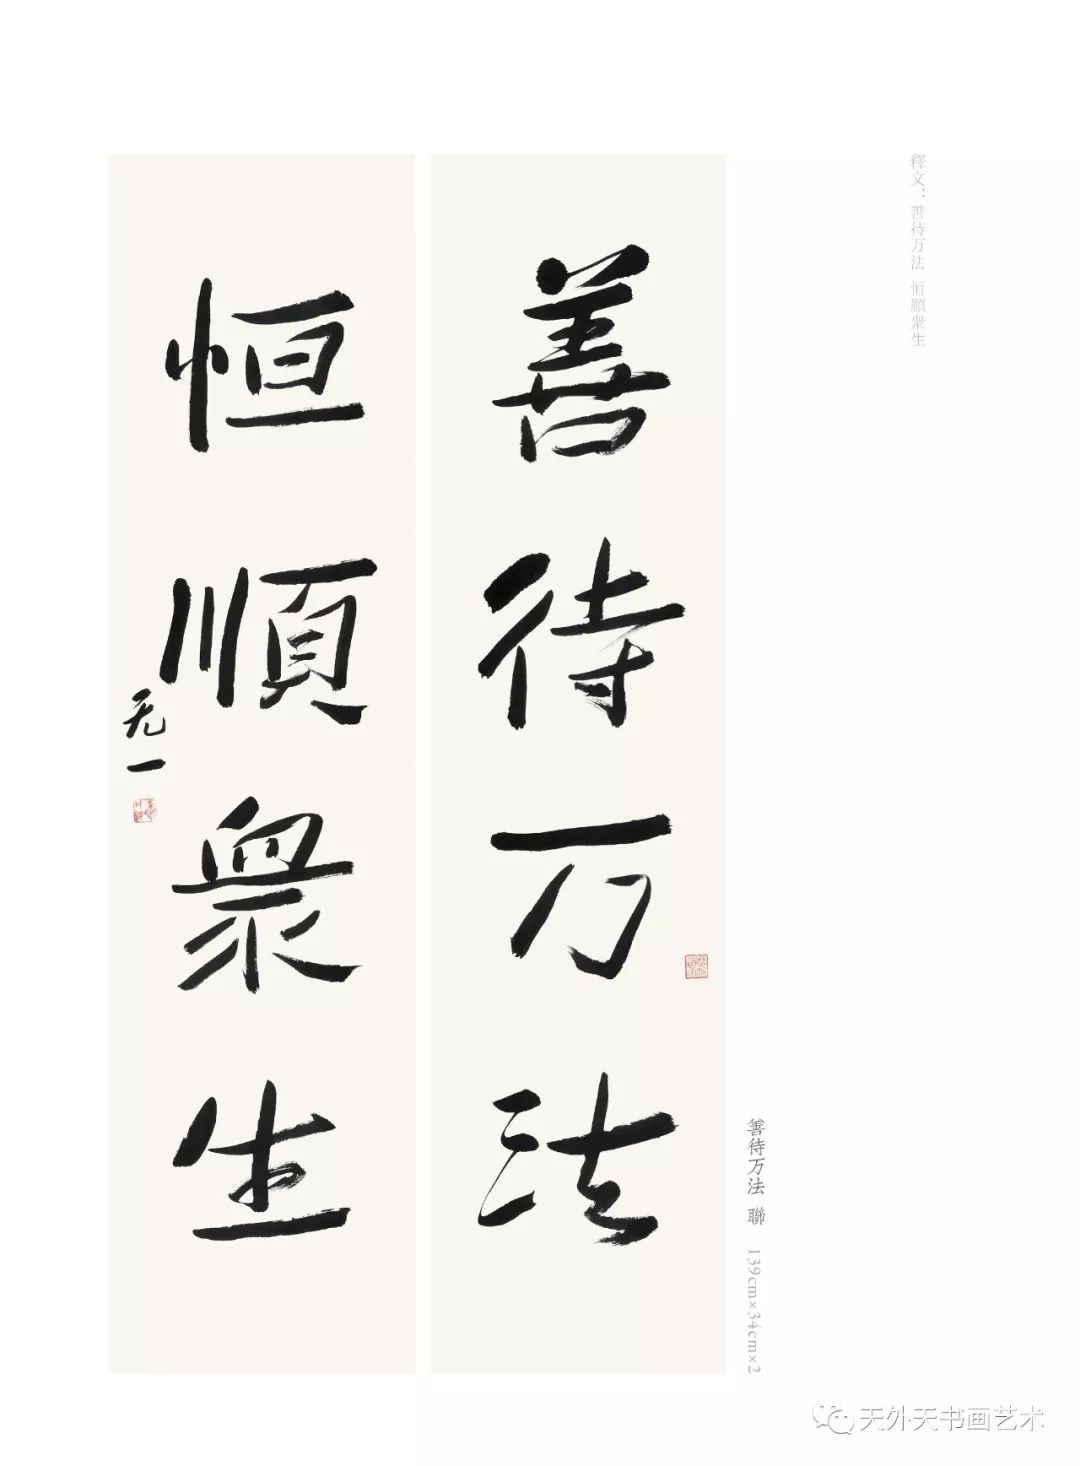 釋文：善待万法 恒順衆生
善待万法
恒順衆生
无一
善待万法 聯 139cm×34cm×2
天外·天书画艺术